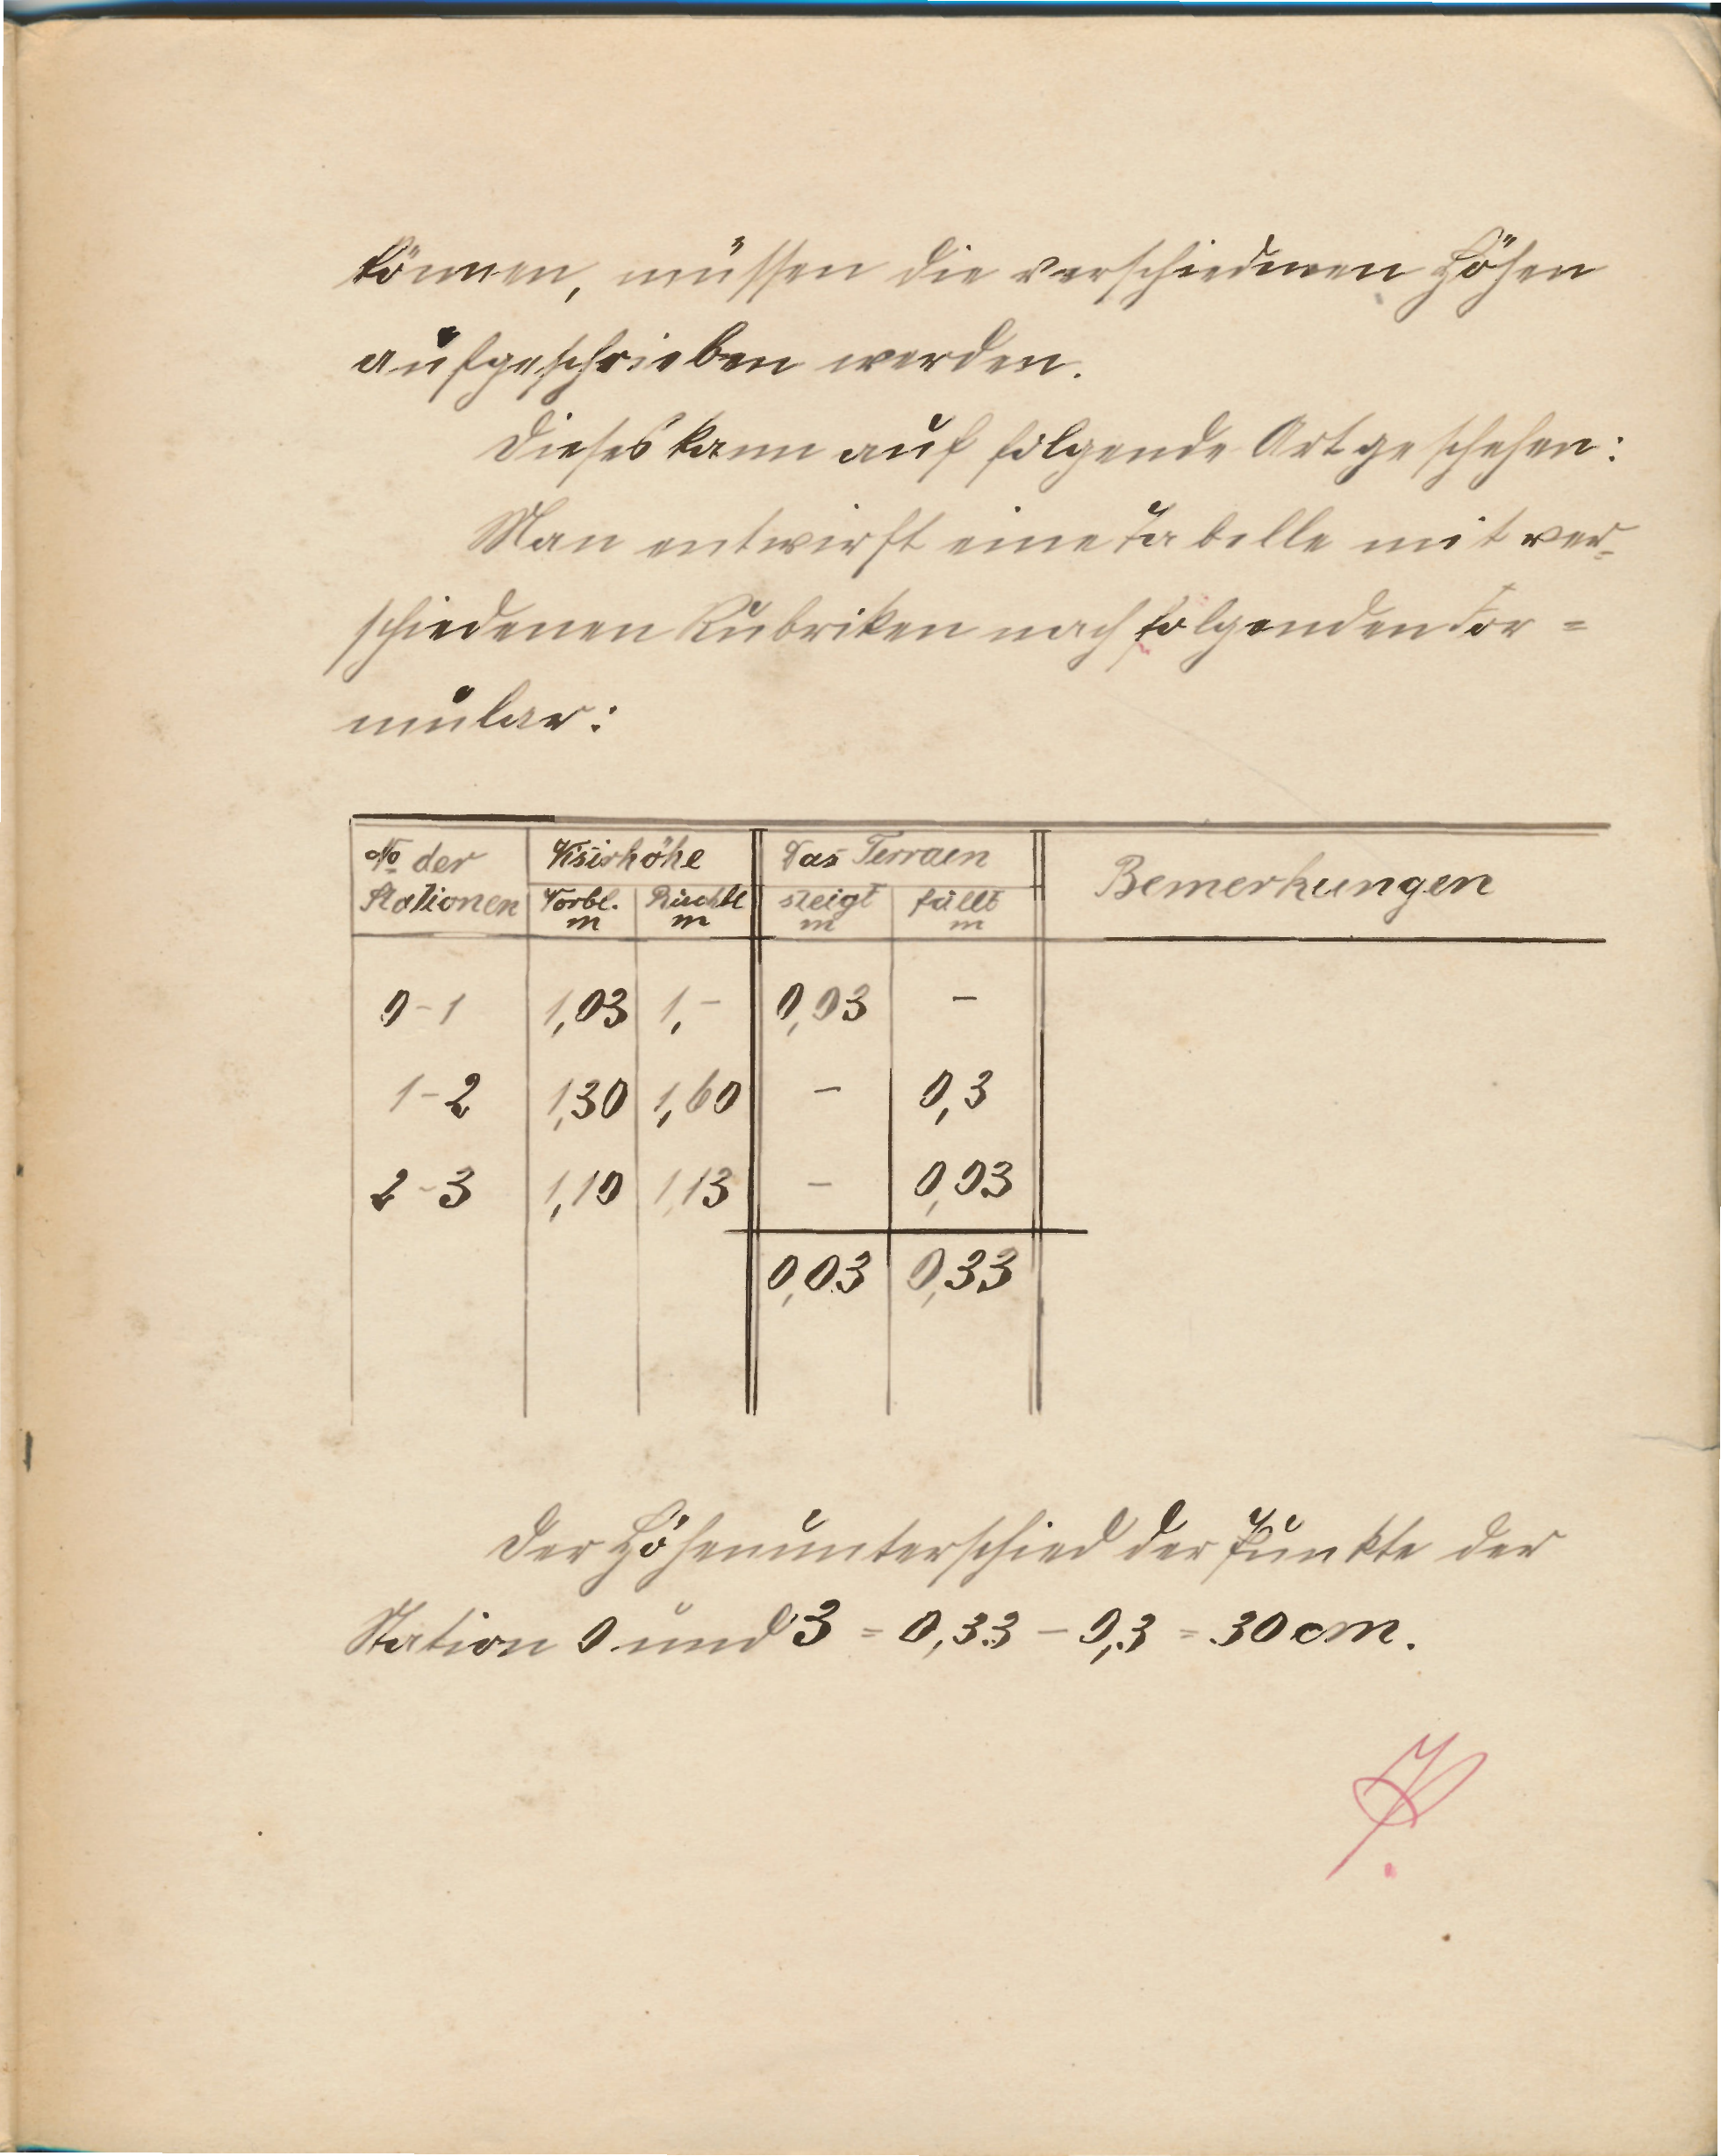 können, müssen die verschiedenen Höhen
aufgeschrieben werden.
Dieses kann auf folgende Art geschehen:
Man entwirft eine Tabelle mit ver-
schiedenen Rubriken nach folgenden For=
mular:
No der Stationen | Visirhöhe | Das Terrain | Bemerkungen
Vorbl. m | Rückbl m | steigt m | fällt m
0-1 | 1,03 | 1,- | 0,03 | -
1-2 | 1,30 | 1,60 | - | 0,3
2-3 | 1,10 | 1,13 | - | 0,03
0,03 | 0,33
Der Höhenunterschied der Punkte der
Station 0 und 3 = 0,33 - 0,3 = 30 cm.